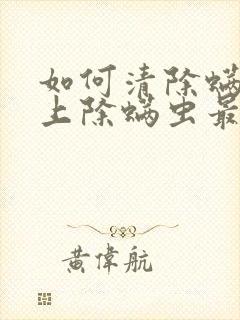 如何清除螨
上除螨虫最
黄偉航